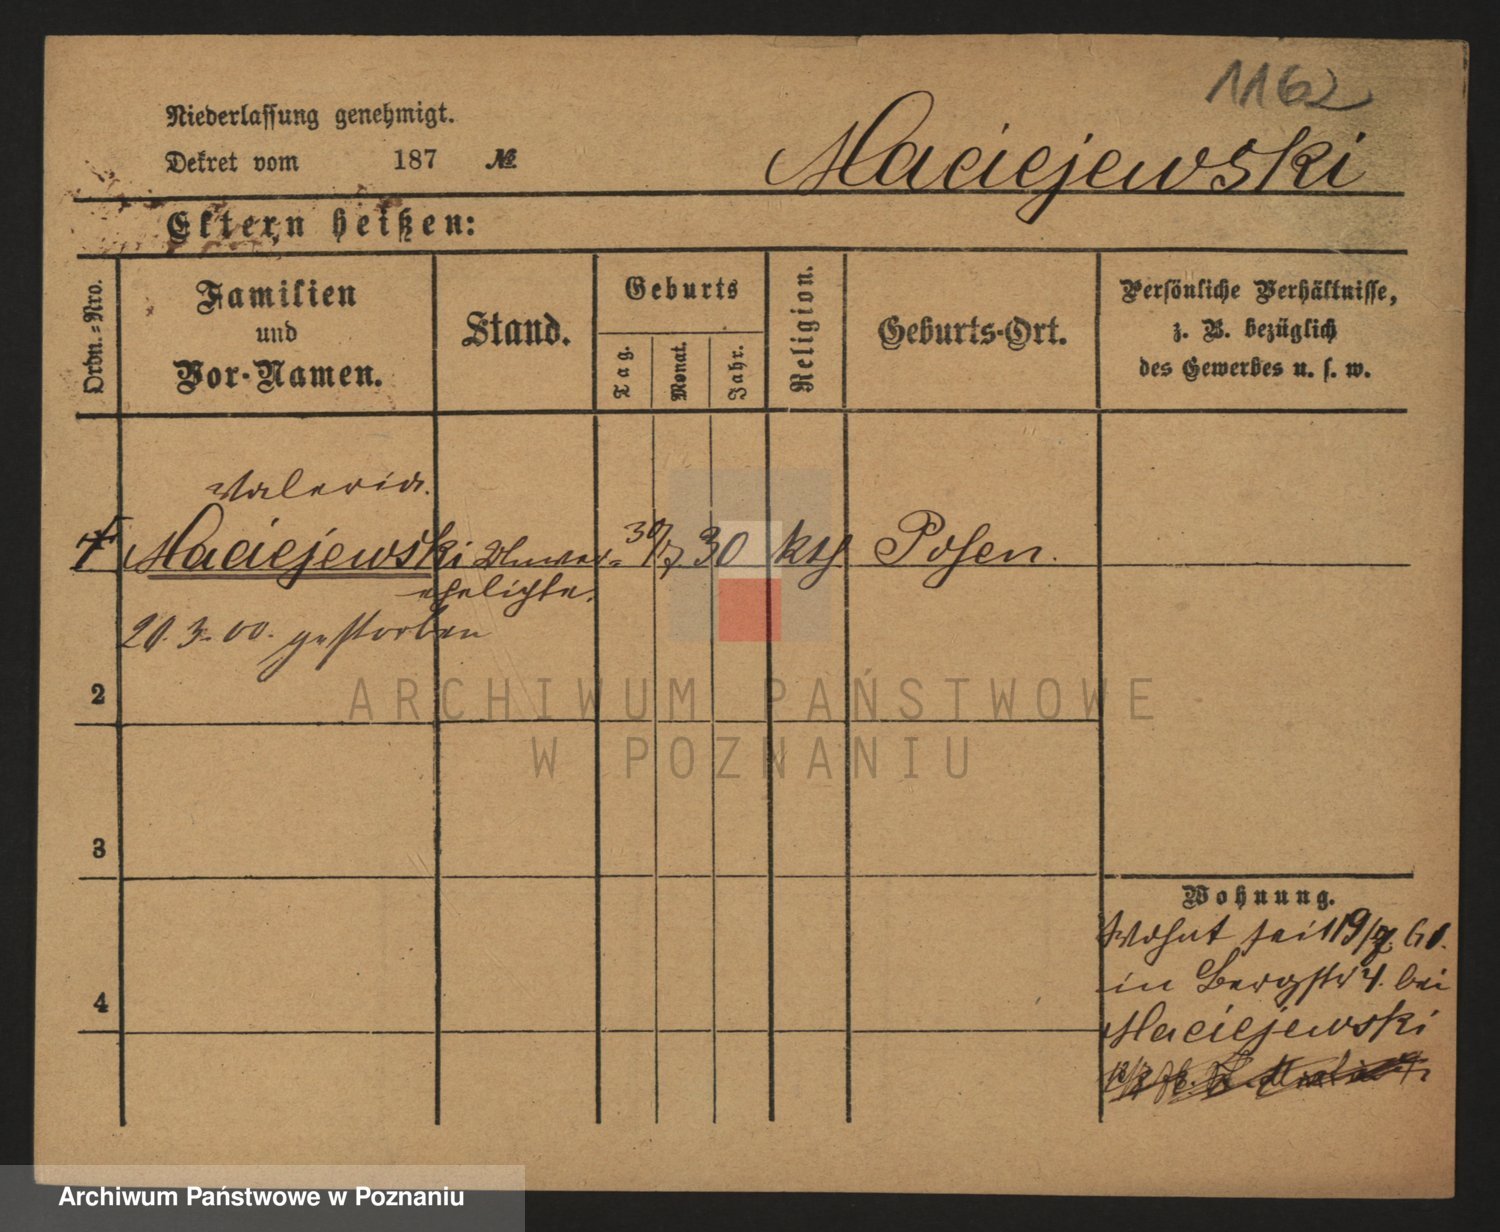 1162
Niederlassung genehmigt.
Dekret vom 187 №
Maciejewski
Eltern heißen:
Ordn.-Nro.
Familien
und
Vor-Namen.
Stand.
Geburts
Tag.
Monat.
Jahr.
Religion.
Geburts-Ort.
Persönliche Verhältnisse,
z. B. bezüglich
des Gewerbes u. s. w.
Valeria.
Maciejewski Unver= 30/7 30 kth Posen.
ehelichte.
20. 3. 00. gestorben
2
3
4
Wohnung.
Wohnt seit 19/7. 61.
in Bergstr 4. bei
Maciejewski
ARCHIWUM PAŃSTWOWE
W POZNANIU
Archiwum Państwowe w Poznaniu